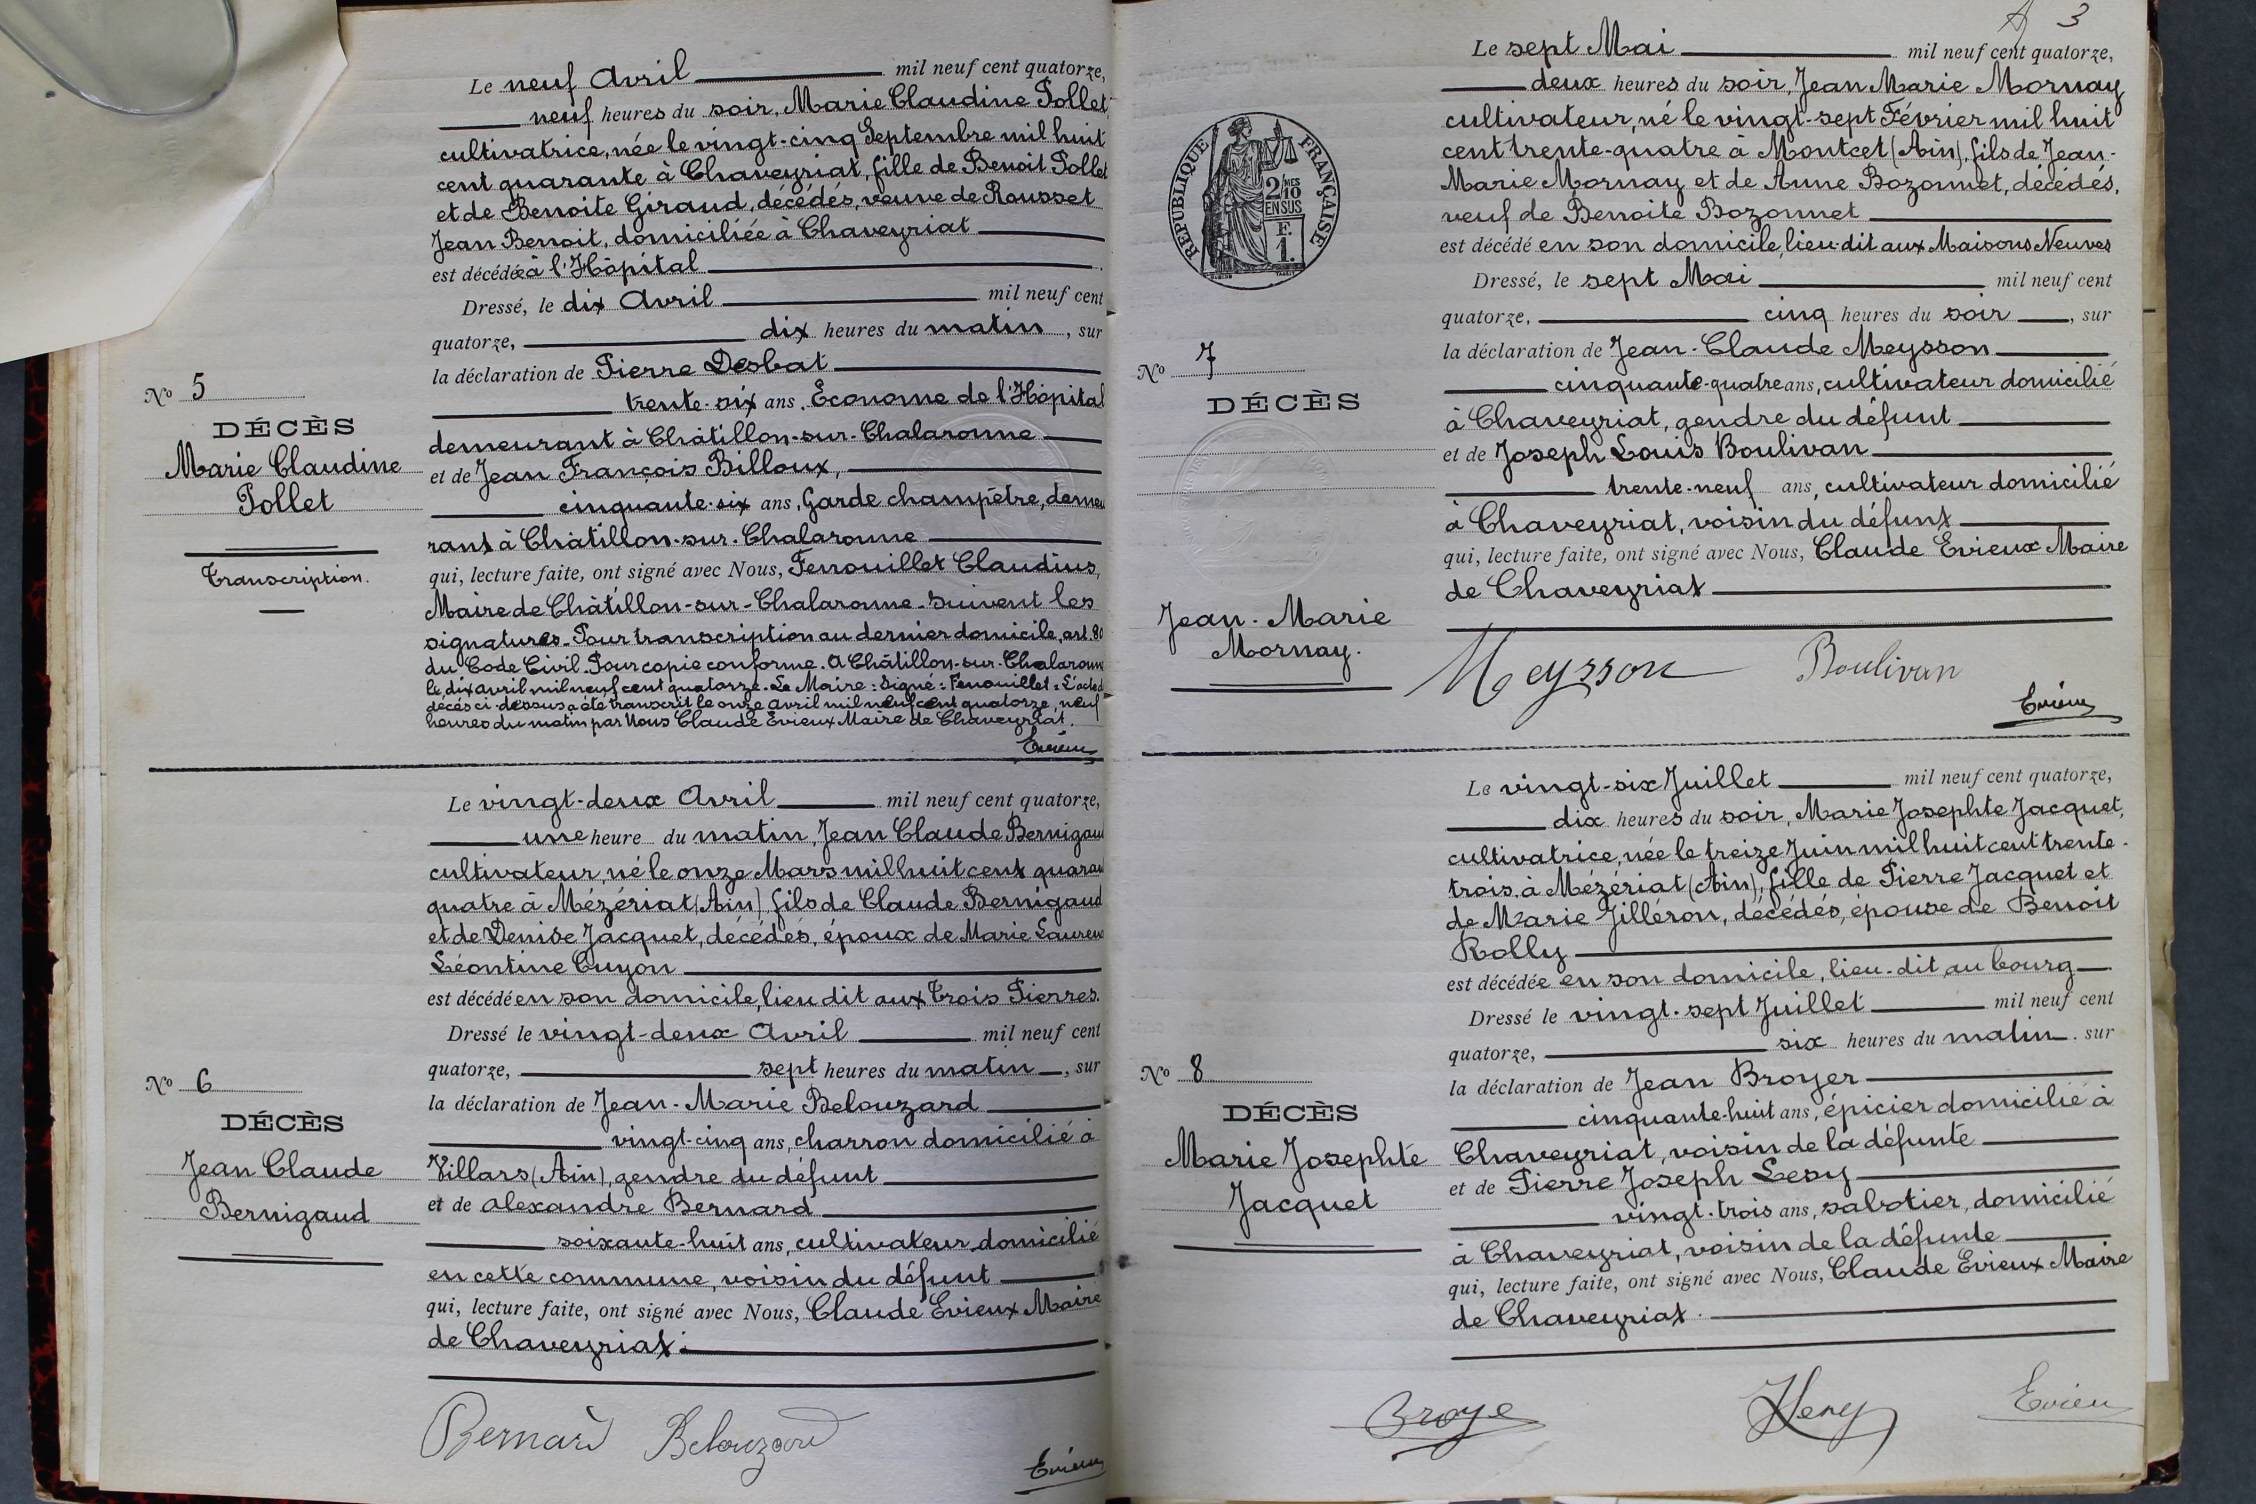 Le neuf Avril mil neuf cent quatorze,
neuf heures du soir, Marie Claudine Pollet,
cultivatrice, née le vingt-cinq Septembre mil huit
cent quarante à Chaveyriat, fille de Benoit Pollet
et de Benoite Giraud, décédés, veuve de Rousset
Jean Benoit, domiciliée à Chaveyriat
est décédée à l'Hôpital
Dressé, le dix Avril mil neuf cent
quatorze, dix heures du matin, sur
la déclaration de Pierre Desbat
trente-six ans, Econome de l'Hôpital
demeurant à Châtillon-sur-Chalaronne
et de Jean François Billoux,
cinquante-six ans, Garde champêtre, demeu
rant à Châtillon-sur-Chalaronne
qui, lecture faite, ont signé avec Nous, Fenouillet Claudius,
Maire de Châtillon-sur-Chalaronne. Suivent les
signatures. Pour transcription au dernier domicile, art. 80
du Code Civil. Pour copie conforme. A Châtillon-sur-Chalaronne
le dix avril mil neuf cent quatorze. Le Maire : Signé : Fenouillet : L'acte de
décès ci-dessus a été transcrit le onze avril mil neuf cent quatorze, neuf
heures du matin par Nous Claude Evieux Maire de Chaveyriat.
Evieux
No 5
DÉCÈS
Marie Claudine
Pollet
Transcription.
Le vingt-deux Avril mil neuf cent quatorze,
une heure du matin, Jean Claude Bernigaud
cultivateur, né le onze Mars mil huit cent quaran
quatre à Mézériat (Ain), fils de Claude Bernigaud
et de Denise Jacquet, décédés, époux de Marie Laurence
Léontine Cuyon
est décédé en son domicile, lieu dit aux Trois Pierres.
Dressé le vingt-deux Avril mil neuf cent
quatorze, sept heures du matin, sur
la déclaration de Jean-Marie Belouzard
vingt-cinq ans, charron domicilié à
Villars (Ain), gendre du défunt
et de Alexandre Bernard
soixante-huit ans, cultivateur domicilié
en cette commune, voisin du défunt
qui, lecture faite, ont signé avec Nous, Claude Evieux Maire
de Chaveyriat.
Bernard Belouzard
Evieux
No 6
DÉCÈS
Jean Claude
Bernigaud
3
Le sept Mai mil neuf cent quatorze,
deux heures du soir, Jean Marie Mornay
cultivateur, né le vingt-sept Février mil huit
cent trente-quatre à Montcet (Ain), fils de Jean-
Marie Mornay et de Anne Bozonnet, décédés,
veuf de Benoite Bozonnet
est décédé en son domicile, lieu-dit aux Maisons Neuves
Dressé, le sept Mai mil neuf cent
quatorze, cinq heures du soir, sur
la déclaration de Jean-Claude Meysson
cinquante-quatre ans, cultivateur domicilié
à Chaveyriat, gendre du défunt
et de Joseph Louis Boulivan
trente-neuf ans, cultivateur domicilié
à Chaveyriat, voisin du défunt
qui, lecture faite, ont signé avec Nous, Claude Evieux Maire
de Chaveyriat
Meysson Boulivan
Evieux
RÉPUBLIQUE FRANÇAISE
2/10MES
EN SUS
F.
1.
No 7
DÉCÈS
Jean-Marie
Mornay.
Le vingt-six Juillet mil neuf cent quatorze,
dix heures du soir, Marie Josephte Jacquet,
cultivatrice, née le treize Juin mil huit cent trente-
trois à Mézériat (Ain), fille de Pierre Jacquet et
de Marie Jilléron, décédés, épouse de Benoit
Rolly
est décédée en son domicile, lieu-dit au bourg
Dressé le vingt-sept Juillet mil neuf cent
quatorze, six heures du matin. sur
la déclaration de Jean Broyer
cinquante-huit ans, épicier domicilié à
Chaveyriat, voisin de la défunte
et de Pierre Joseph Lesy
vingt-trois ans, sabotier, domicilié
à Chaveyriat, voisin de la défunte
qui, lecture faite, ont signé avec Nous, Claude Evieux Maire
de Chaveyriat.
Broye
Evieux
No 8
DÉCÈS
Marie Josephte
Jacquet